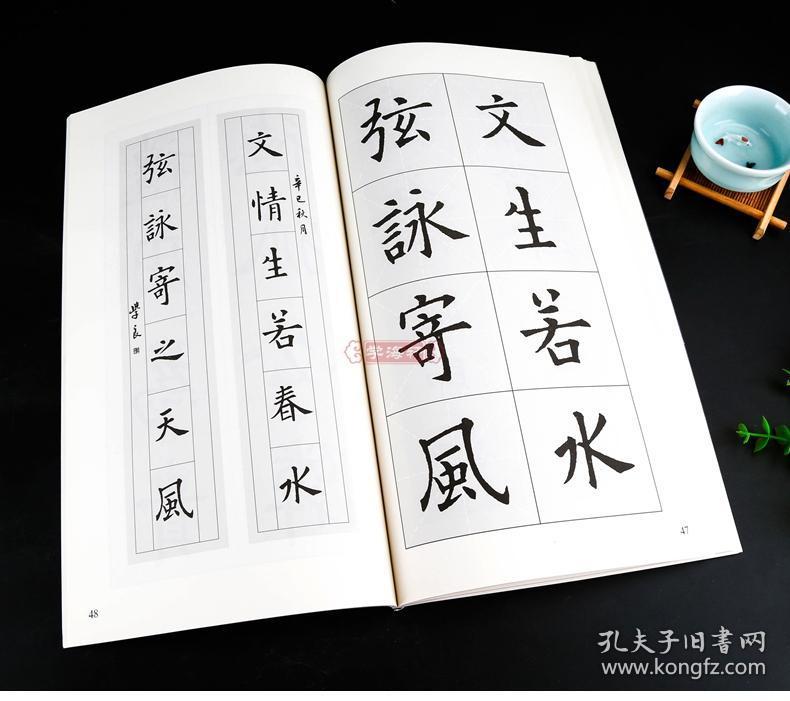 文生若水
弦詠寄風
47
文情生若春水
辛巳秋月
弦詠寄之天風
學良
48
学海
孔夫子旧書网
www.kongfz.com